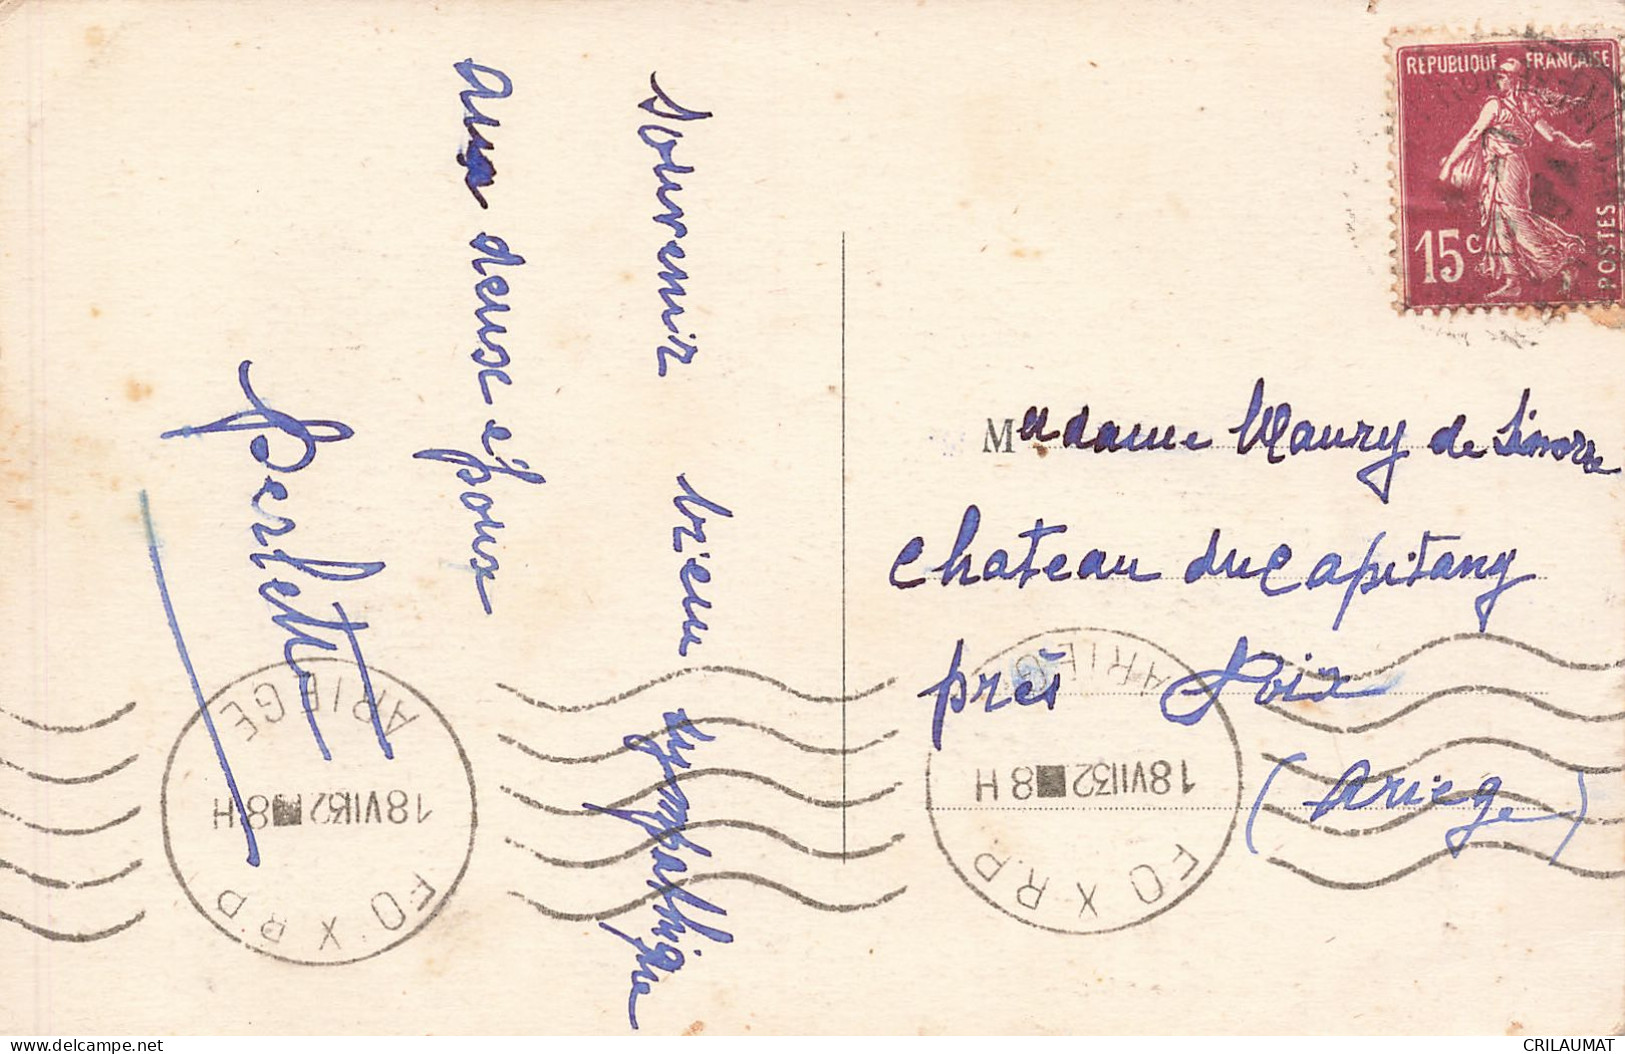 Souvenir bien sympathique
aux deux époux
REPUBLIQUE FRANÇAISE
15c
POSTES
Madame Maury de
Chateau du Capitany
près Foix
(Ariège)
FOIX R.P.
18 VII 32 8H
ARIEGE
FOIX R.P.
18 VII 32 8H
ARIEGE
CRILAUMAT